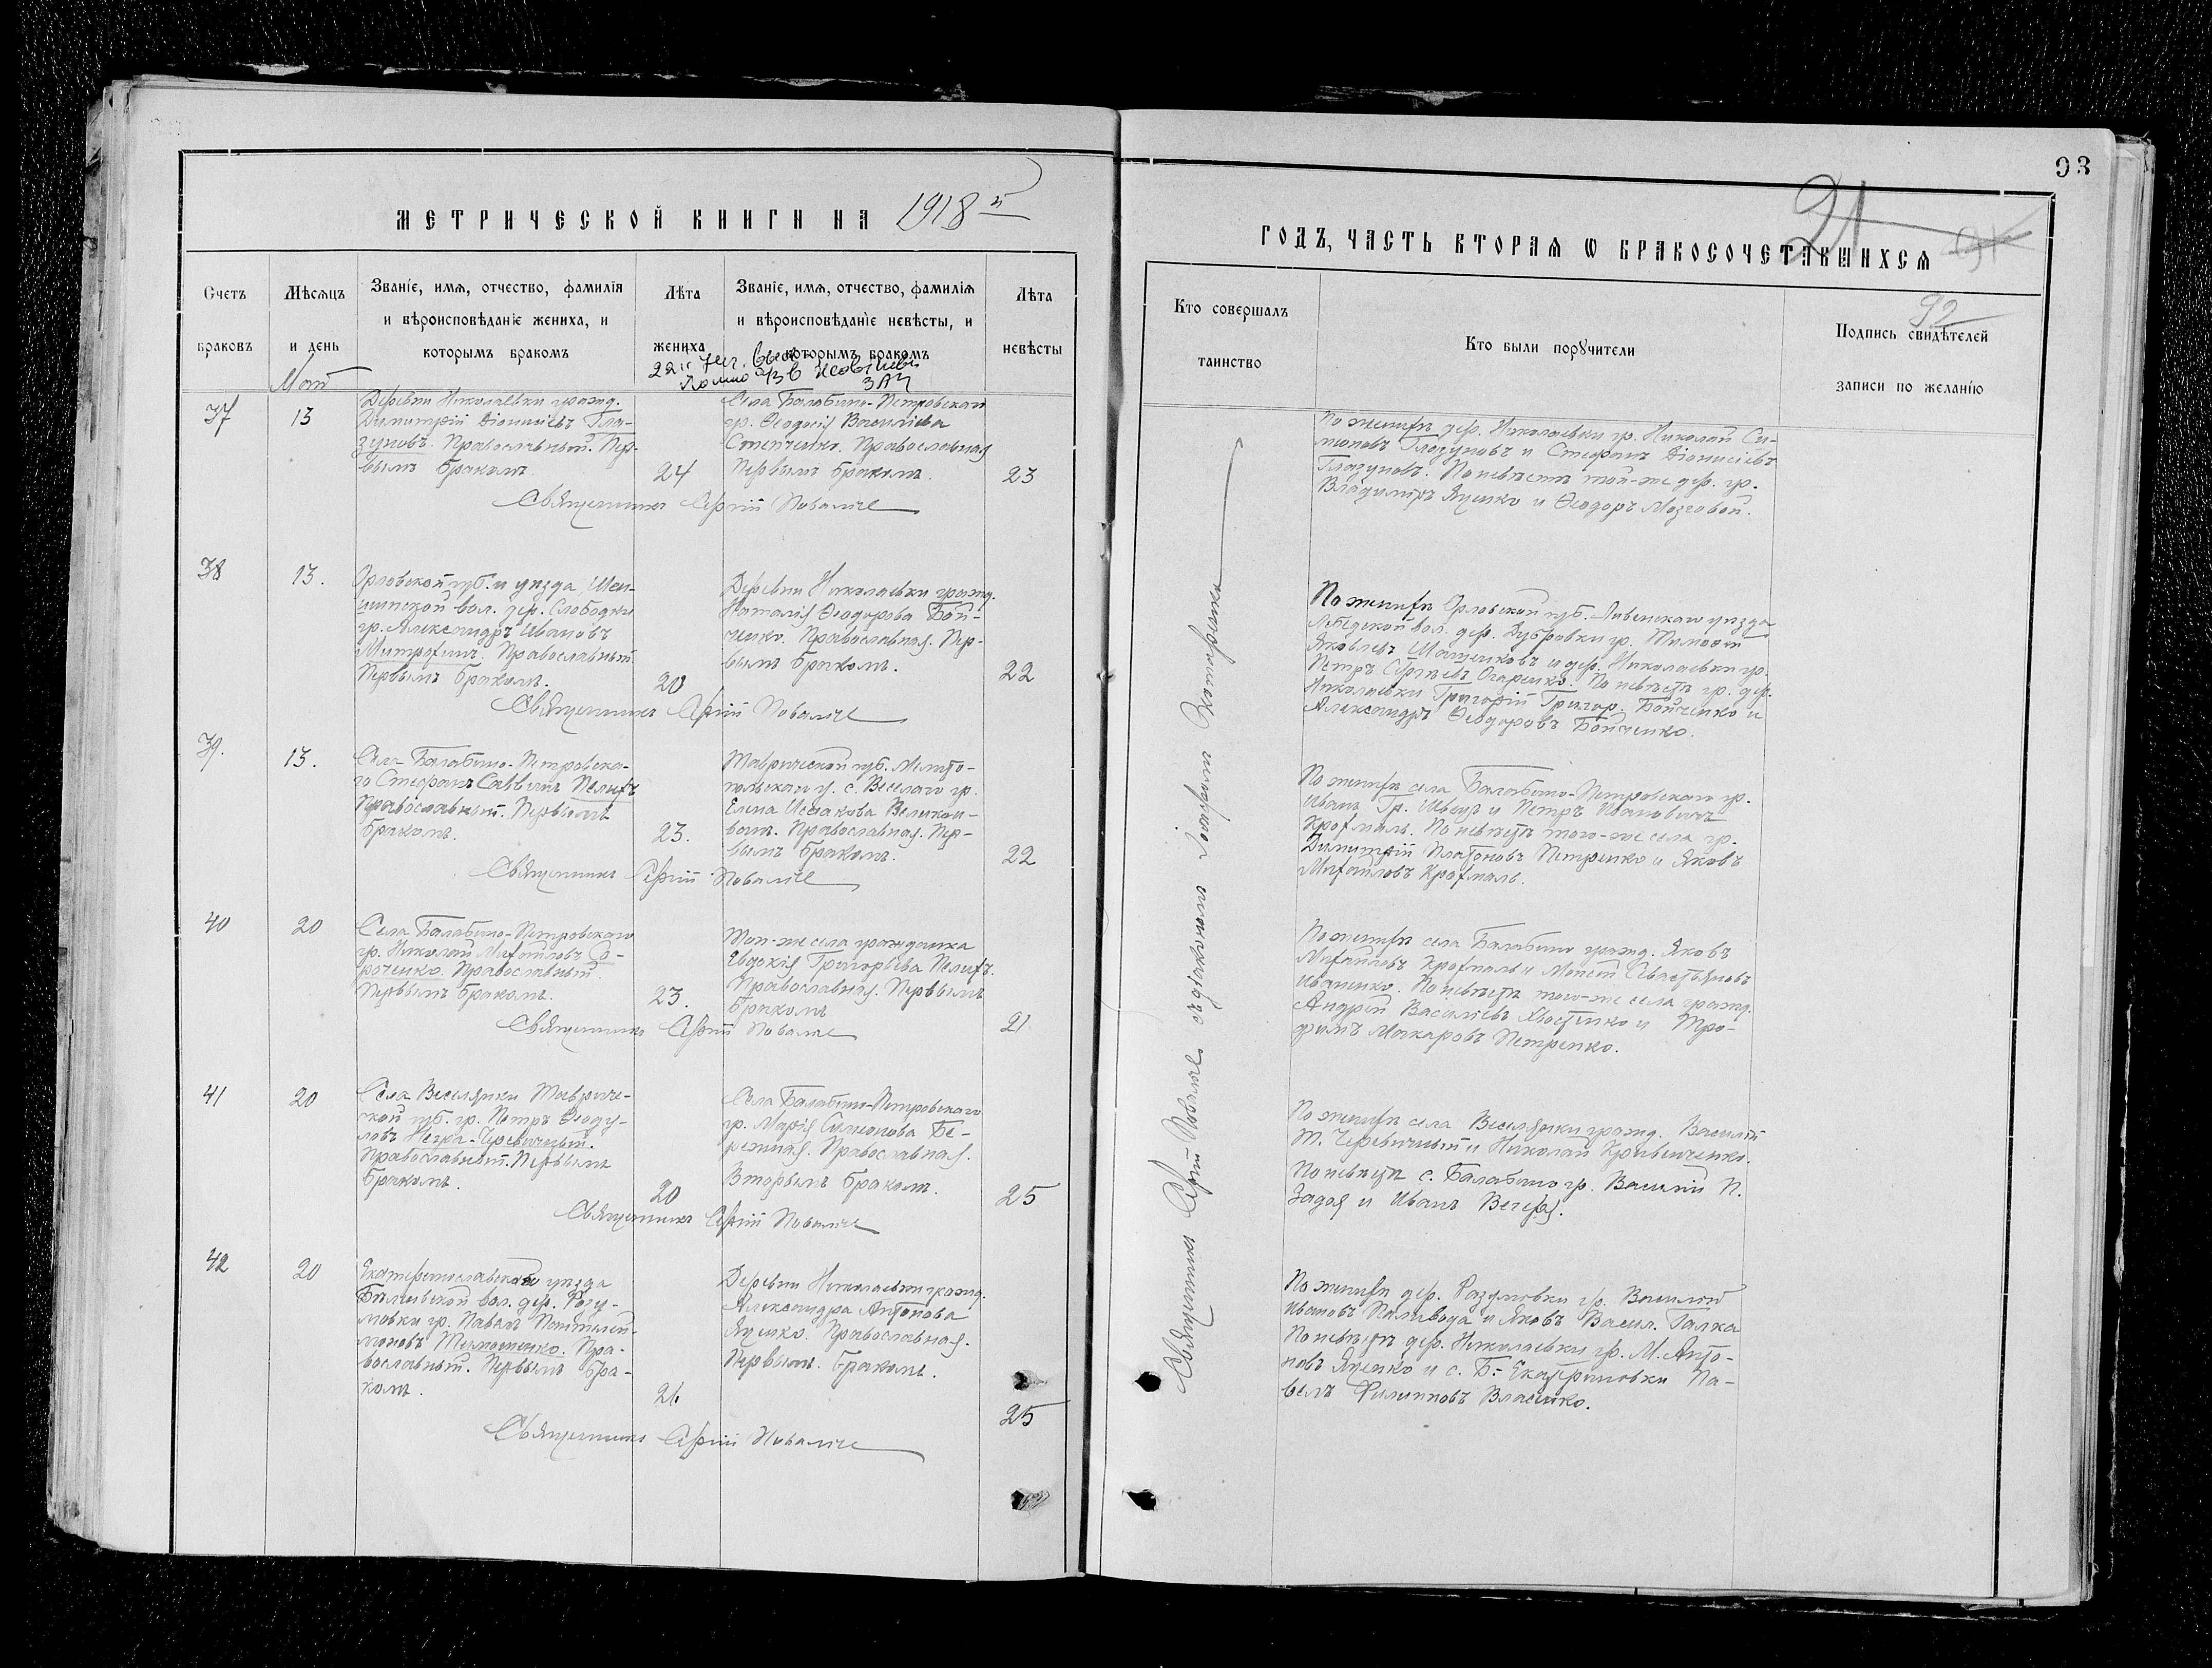 93
21
91
92
МЕТРИЧЕСКОЙ КНИГИ НА 1918 й
ГОДЪ, ЧАСТЬ ВТОРАЯ Ѡ БРАКОСОЧЕТАВШИХСЯ
Счетъ браковъ
Мѣсяцъ и день
Званіе, имя, отчество, фамилія
и вѣроисповѣданіе жениха, и
которымъ бракомъ
Лѣта жениха
Званіе, имя, отчество, фамилія
и вѣроисповѣданіе невѣсты, и
которымъ бракомъ
Лѣта невѣсты
Кто совершалъ таинство
Кто были порꙋчители
Подпись свидѣтелей
записи по желанію
Май
37
13
Деревни Николаевки гражд.
Димитрій Діонисіевъ Гла-
зуновъ. Православный. Пер-
вымъ бракомъ.
24
Села Балабино-Петровскаго
гр. Ѳеодосія Васильева
Православная
Первымъ бракомъ.
23
Священникъ Сергій
По женихѣ дер. Николаевки гр. Николай Си-
меоновъ Глазуновъ и Стефанъ Діонисіевъ
Глазуновъ. По невѣстѣ той-же дер. гр.
Владиміръ Яценко и Ѳеодоръ Мозговой.
38
13.
Орловской губ. и уѣзда
вол. дер. Слободки
гр. Александръ Ивановъ
Митрохинъ. Православный.
Первымъ бракомъ.
20
Деревни Николаевки гражд.
Наталія Ѳеодорова Бой-
ченко. Православная. Пер-
вымъ бракомъ.
22
Священникъ Сергій
По женихѣ Орловской губ. Ливенскаго уѣзда
вол. дер. Дубровки гр. Тимоѳей
Яковлевъ и дер. Николаевки гр.
Петръ Сергѣевъ Огаренко. По невѣстѣ гр. дер.
Николаевки Григорій Григор. Бойченко и
Александръ Ѳеодоровъ Бойченко.
39.
13.
Села Балабино-Петровска-
го Стефанъ Саввинъ Пелихъ
Православный. Первымъ
бракомъ.
23.
Таврической губ. Мелито-
польскаго у. с. Веселаго гр.
Елена Исаакова
Православная. Пер-
вымъ бракомъ.
22
Священникъ Сергій
По женихѣ села Балабино-Петровскаго гр.
Иванъ Гр. Швецъ и Петръ Ивановичъ
Крохмаль. По невѣстѣ того-же села гр.
Димитрій Платоновъ Петренко и Яковъ
Михайловъ Крохмаль.
40
20
Села Балабино-Петровскаго
гр. Николай Михайловъ Со-
роченко. Православный.
Первымъ бракомъ.
23.
Того-же села гражданка
Евдокія Григорьева Пелихъ.
Православная. Первымъ
бракомъ
21
Священникъ Сергій
По женихѣ села Балабино гражд. Яковъ
Михайловъ Крохмаль и Моисей Севастьяновъ
Иваненко. По невѣстѣ того-же села гражд.
Андрей Васильевъ Хвостенко и Тро-
фимъ Макаровъ Петренко.
41
20
Села Веселянки Тавриче-
ской губ. гр. Петръ Ѳеоду-
ловъ Негра-Черевичный.
Православный. Первымъ
бракомъ.
20
Села Балабино-Петровскаго
гр. Марія Симеонова Бе-
режная. Православная.
Вторымъ бракомъ.
25
Священникъ Сергій
По женихѣ села Веселянки гражд. Василій
Т. Черевичный и Николай Кривенченко.
По невѣстѣ с. Балабино гр. Василій П.
Задоя и Иванъ Вечеря.
42
20
Екатеринославскаго уѣзда
Бѣленьской вол. дер. Разу-
мовки гр. Павелъ Пантелей-
моновъ Тимошенко. Пра-
вославный. Первымъ бра-
комъ.
21.
Деревни Николаевки гражд.
Александра Антонова
Яценко. Православная.
Первымъ бракомъ.
25
Священникъ Сергій
По женихѣ дер. Разумовки гр. Василій
Ивановъ Паливода и Яковъ Васил. Галка
По невѣстѣ дер. Николаевки гр. М. Анто-
новъ Яценко и с. Б.-Екатериновки Па-
велъ Филипповъ Власенко.
Священникъ Сергій съ діакономъ